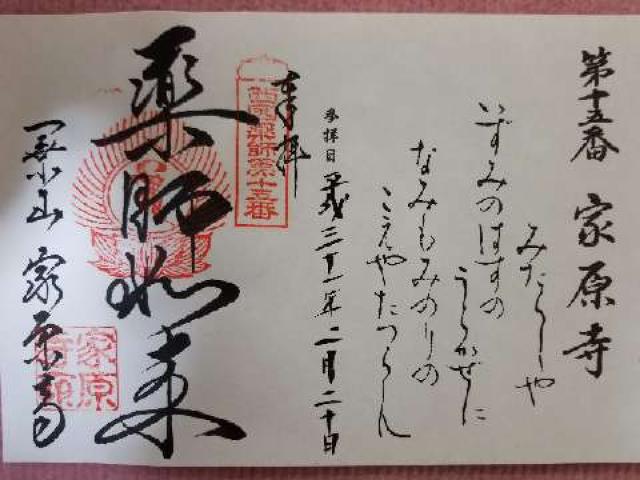 第十五番 家原寺
みたらしや
いずみのはすの
うらかぜに
なみもみのりの
こえやたつらん
参拝日 平成三十一年二月二十日
奉拝
西国薬師第十五番
薬師如来
一乗山 家原寺
家原寺印